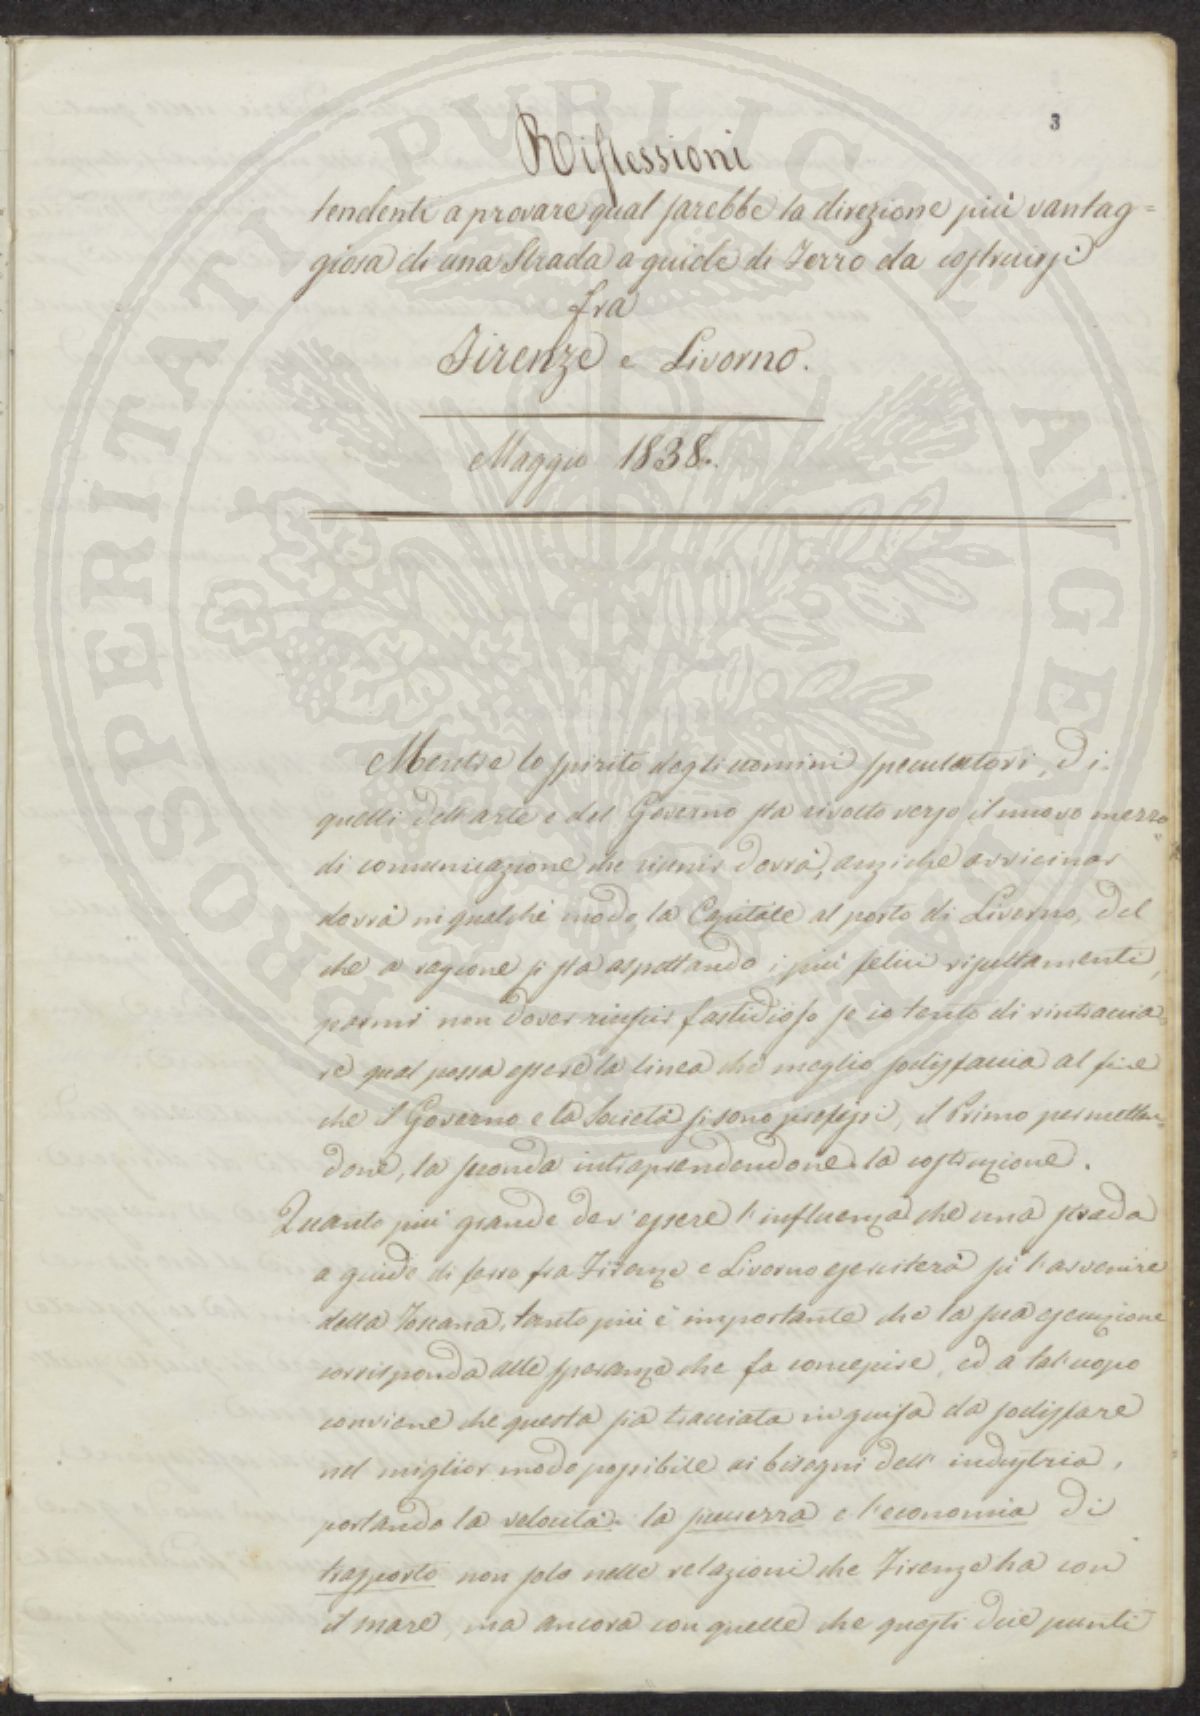 3
Riflessioni
tendenti a provare qual sarebbe la direzione più vantag=
giosa di una Strada a guide di Ferro da costruirsi
fra
Firenze e Livorno.
Maggio 1838.
Mentre lo spirito degli uomini speculatori, di
quelli dell'arte e del Governo sta rivolto verso il nuovo mezzo
di comunicazione che riunir dovrà, anziche avvicinar
dovrà in qualche modo, la Capitale al porto di Livorno, del
che a ragione si sta aspettando i più felici risultamenti,
parmi non dover riuscir fastidioso se io tento di rintraccia=
re qual possa essere la linea che meglio sodisfaccia al fine
che il Governo e la Società si sono prefissi, il Primo permetten=
done, la seconda intraprendendone la costruzione.
Quanto più grande dev'essere l'influenza che una strada
a guide di ferro fra Firenze e Livorno eserciterà su l'avvenire
della Toscana, tanto più è importante che la sua esecuzione
corrisponda alle speranze che fa concepire, ed a tal'uopo
conviene che questa sia tracciata in guisa da sodisfare
nel miglior modo possibile ai bisogni dell'industria,
portando la velocità, la sicurezza e l'economia di
trasporto non solo nelle relazioni che Firenze ha con
il mare, ma ancora con quelle che questi due punti
PROSPERITATI PUBLICAE AVGENDAE